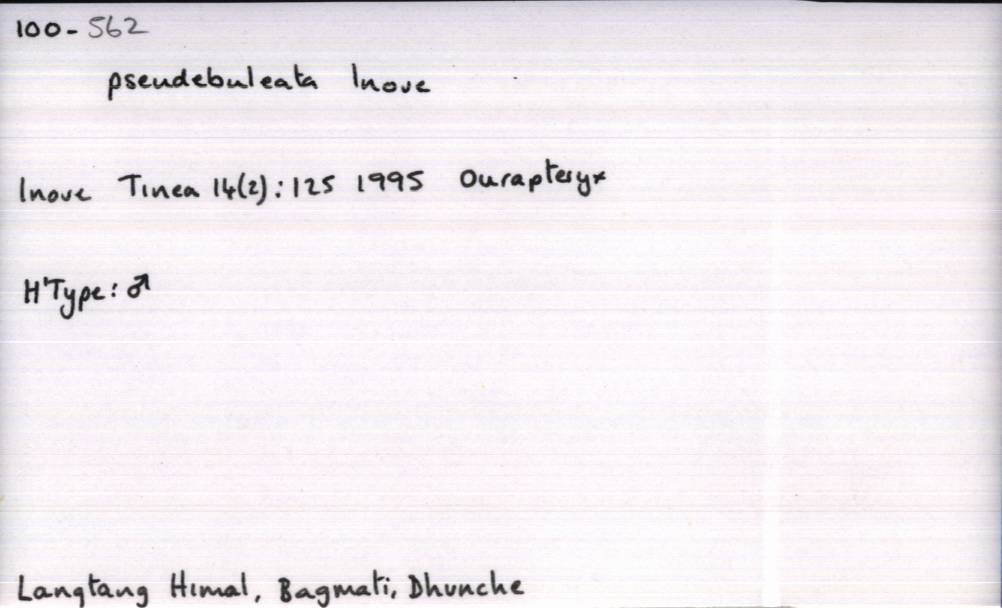 100-562
pseudebuleata Inoue
Inoue Tinea 14(2): 125 1995 Ourapteryx
H'Type: ♂
Langtang Himal, Bagmati, Dhunche